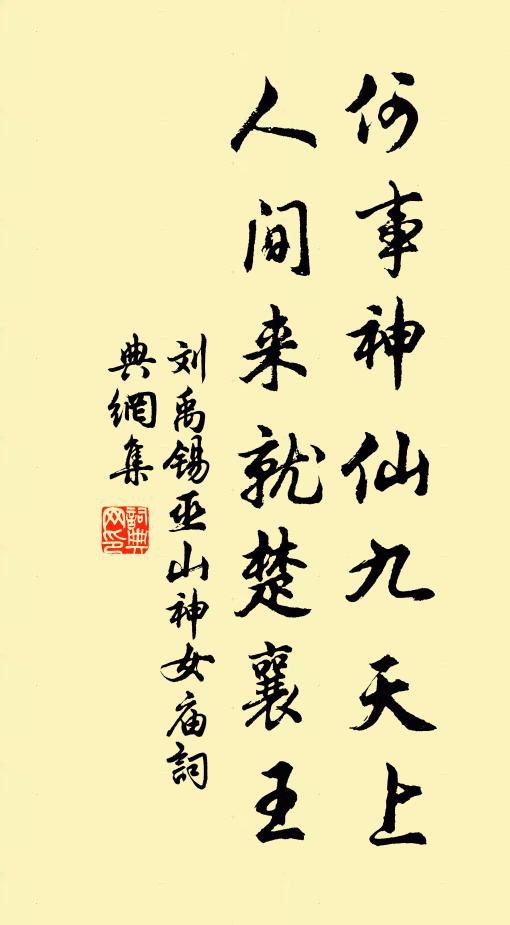 何事神仙九天上
人间来就楚襄王
刘禹锡巫山神女庙詞
典網集
詞典
网印